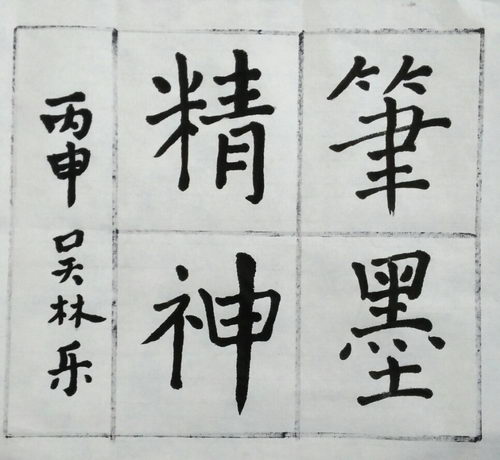 筆墨
精神
丙申 吴林乐